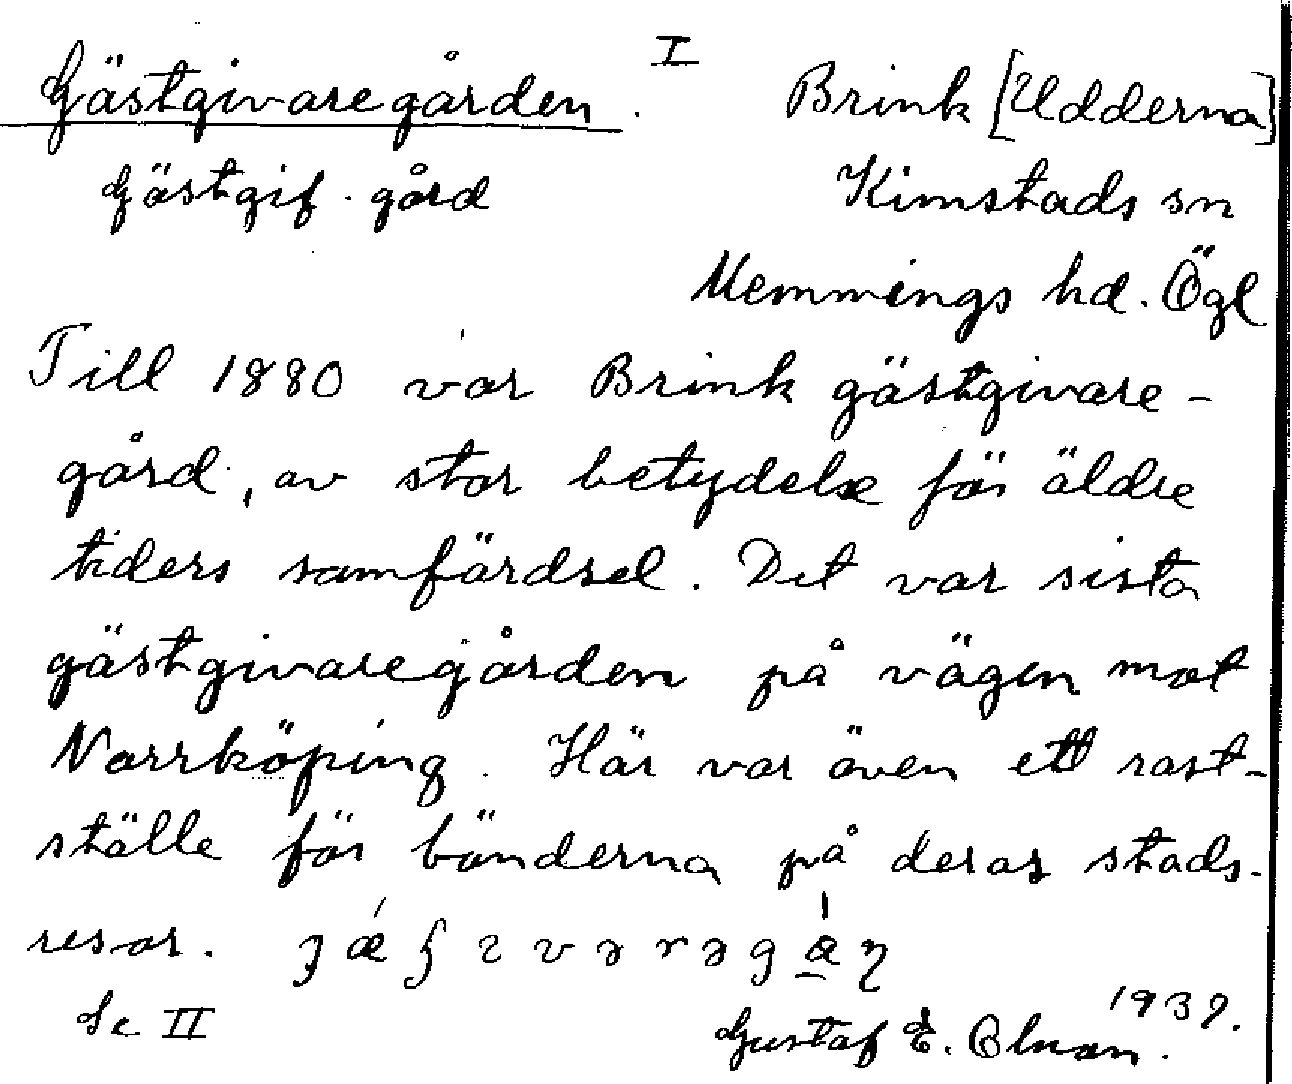 I
Gästgivaregården. Brink [Udderna]
Gästgif. gård Kimstads sn
Memmings hd. Ögl
Till 1880 var Brink gästgivare-
gård, av stor betydelse för äldre
tiders samfärdsel. Det var sista
gästgivaregården på vägen mot
Norrköping. Här var även ett rast-
ställe för bönderna på deras stads-
resor.
Se II 1939.
Gustaf E.